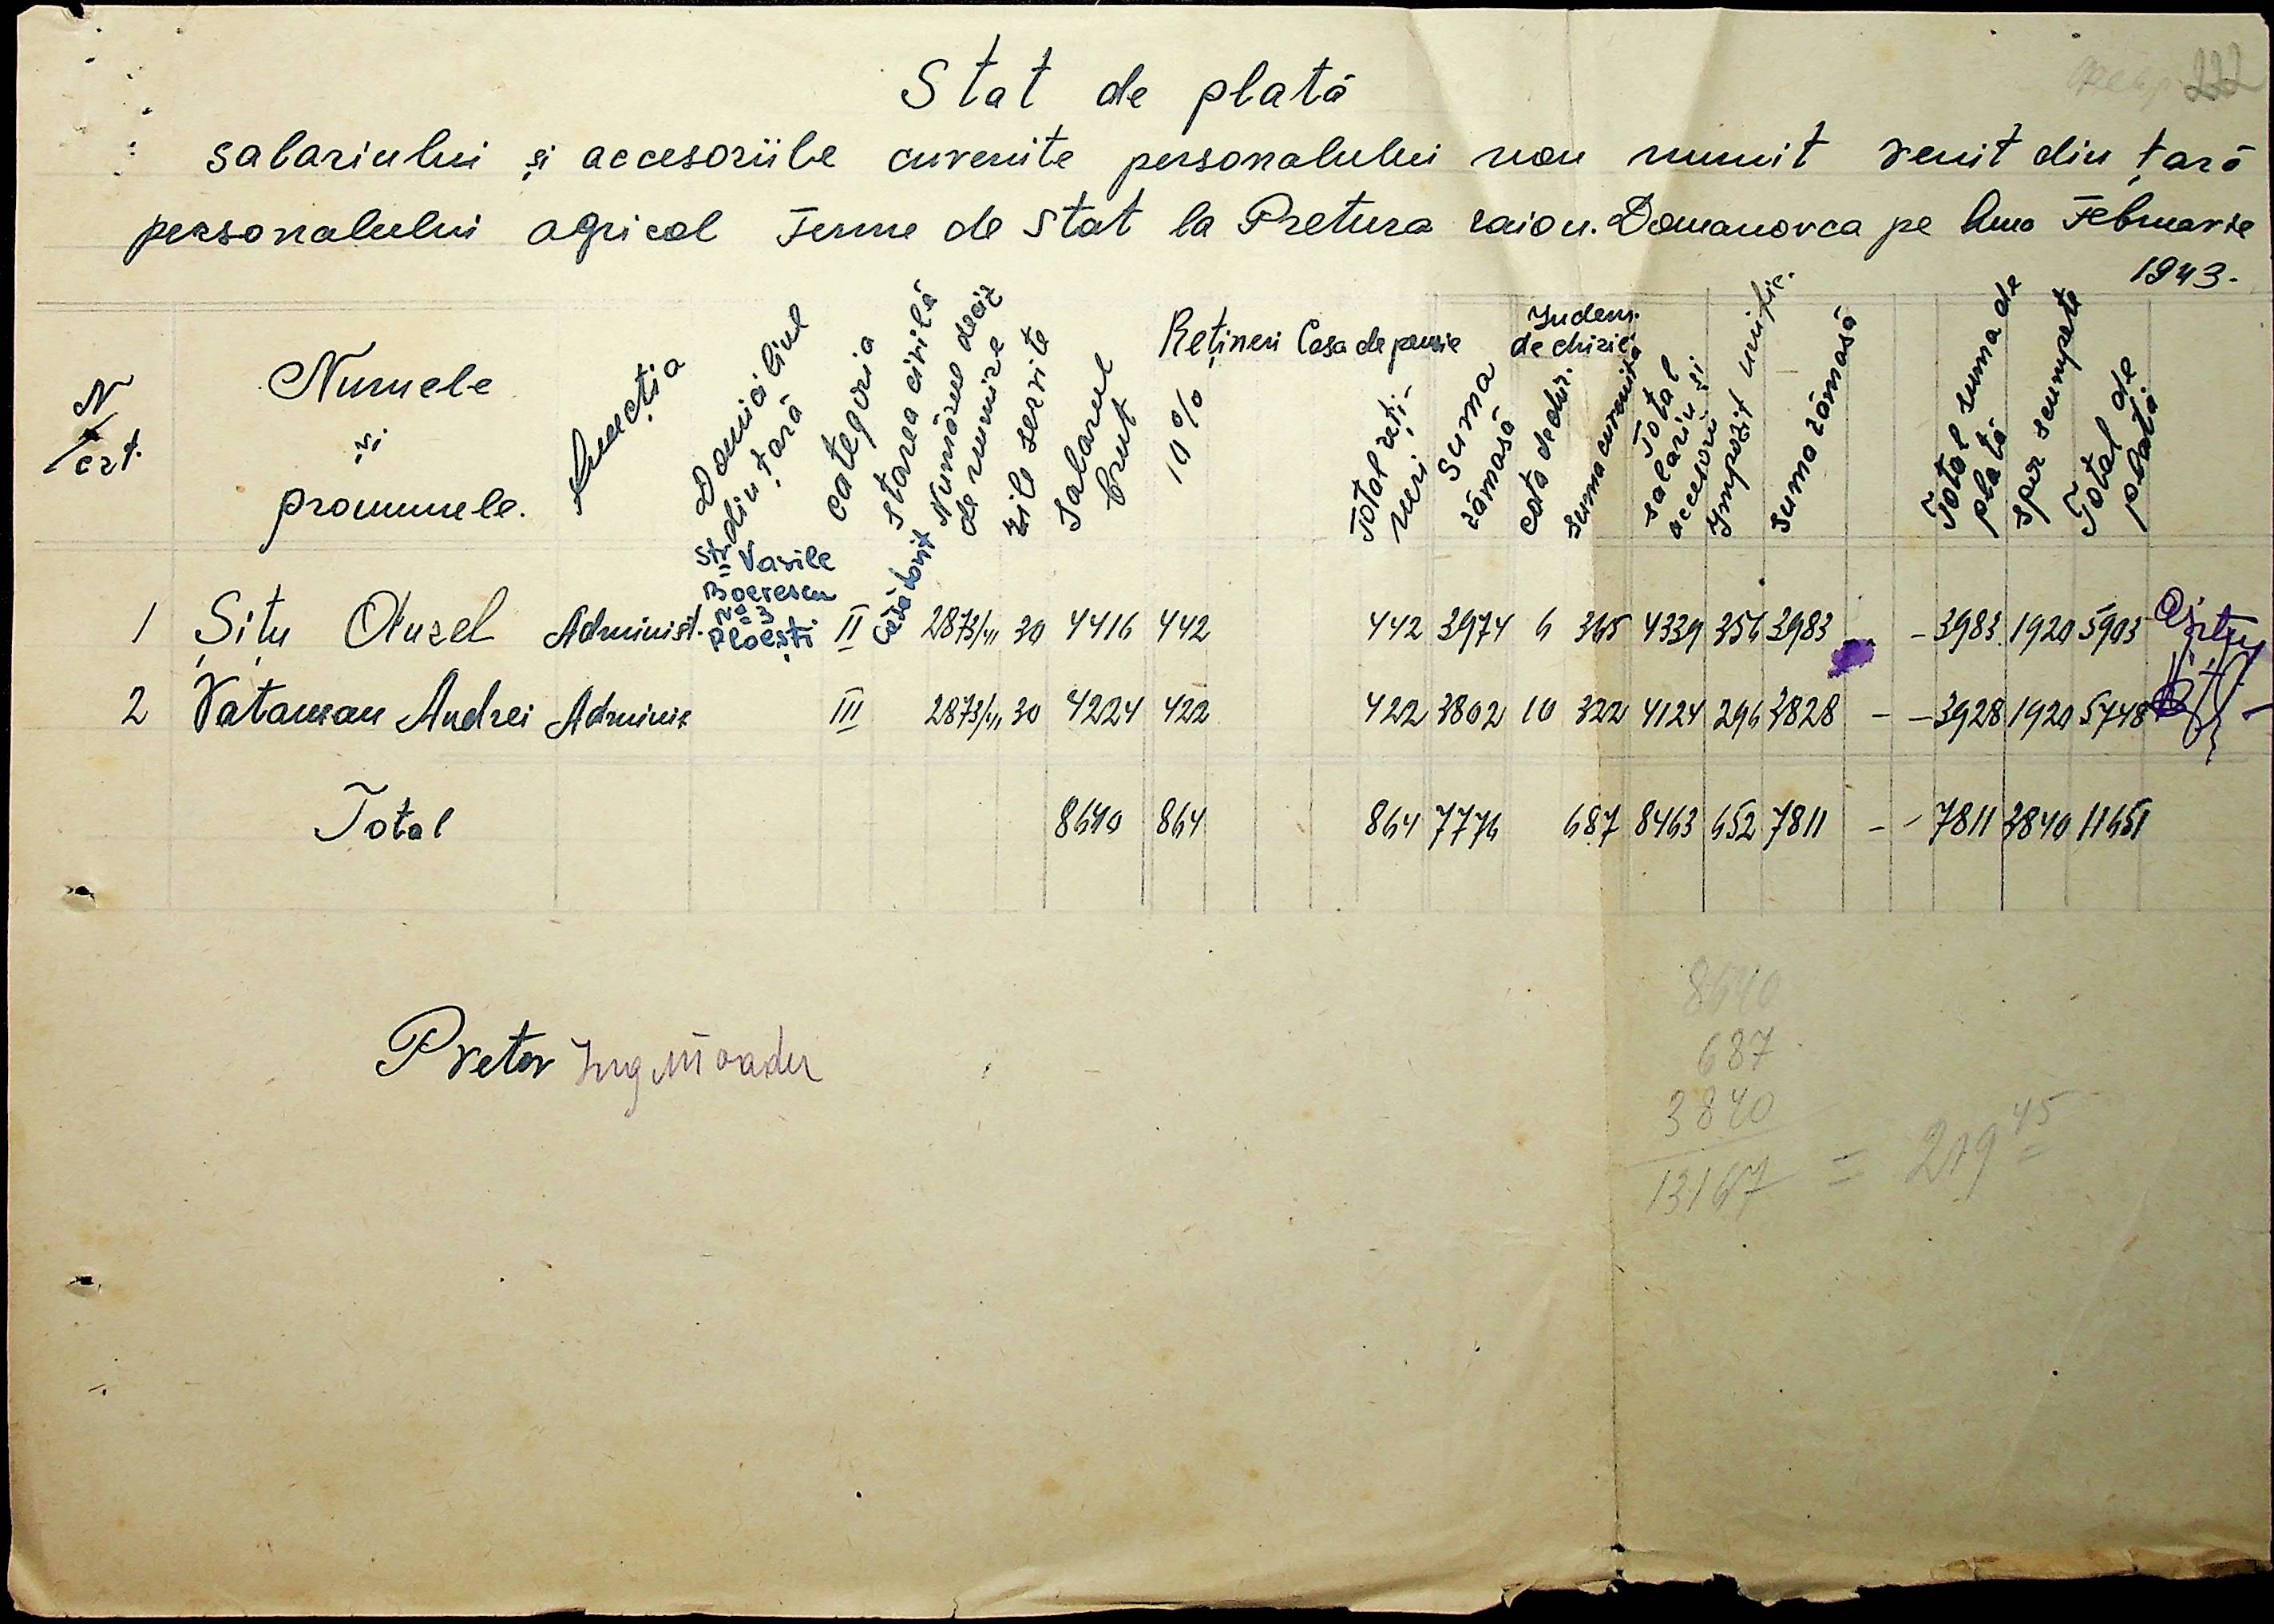 222
Stat de plată
salariului și accesoriile cuvenite personalului nou numit venit din țară
personalului agricol Ferme de Stat la Pretura raion. Domanovca pe luna Februarie
1943.
N crt.
Numele și pronumele.
Funcția
Domiciliul din țară
categoria
starea civilă
Numărul deciz de numire
zile servite
Salarul brut
Rețineri Casa de pensie
10%
Total rețineri
Suma rămasă
Indem. de chirie
cota de chir.
suma cuvenita
Total salariu și accesorii
Impozit unific.
suma rămasă
Total suma de plată
spor scumpete
Total de plată.
1 Șițu Oturel Administ. Str. Vasile Boerescu No 3 Ploești II căsătorit 2873/VI 30 4416 442 442 3974 6 365 4339 356 3983 - 3983 1920 5903
2 Vataman Andrei Adminis III 2873/VI 30 4224 422 422 3802 10 322 4124 296 3828 - - 3928 1920 5748
Total 8640 864 864 7776 687 8463 652 7811 - - 7811 3840 11651
Pretor Ing
8640
687
3840
13167 = 219 45